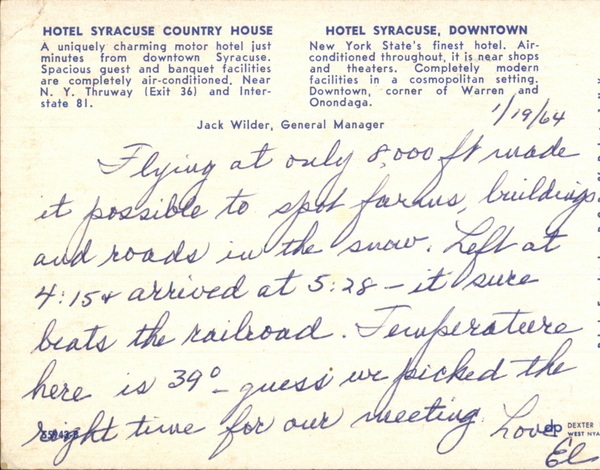 HOTEL SYRACUSE COUNTRY HOUSE
A uniquely charming motor hotel just
minutes from downtown Syracuse.
Spacious guest and banquet facilities
are completely air-conditioned. Near
N. Y. Thruway (Exit 36) and Inter-
state 81.
HOTEL SYRACUSE, DOWNTOWN
New York State's finest hotel. Air-
conditioned throughout, it is near shops
and theaters. Completely modern
facilities in a cosmopolitan setting.
Downtown, corner of Warren and
Onondaga.
Jack Wilder, General Manager
1/19/64
Flying at only 8,000 ft made
it possible to spot farms, buildings
and roads in the snow. Left at
4:15 & arrived at 5:28 - it sure
beats the railroad. Temperature
here is 39° - guess we picked the
right time for our meeting. Love
El
dp DEXTER
WEST NYA